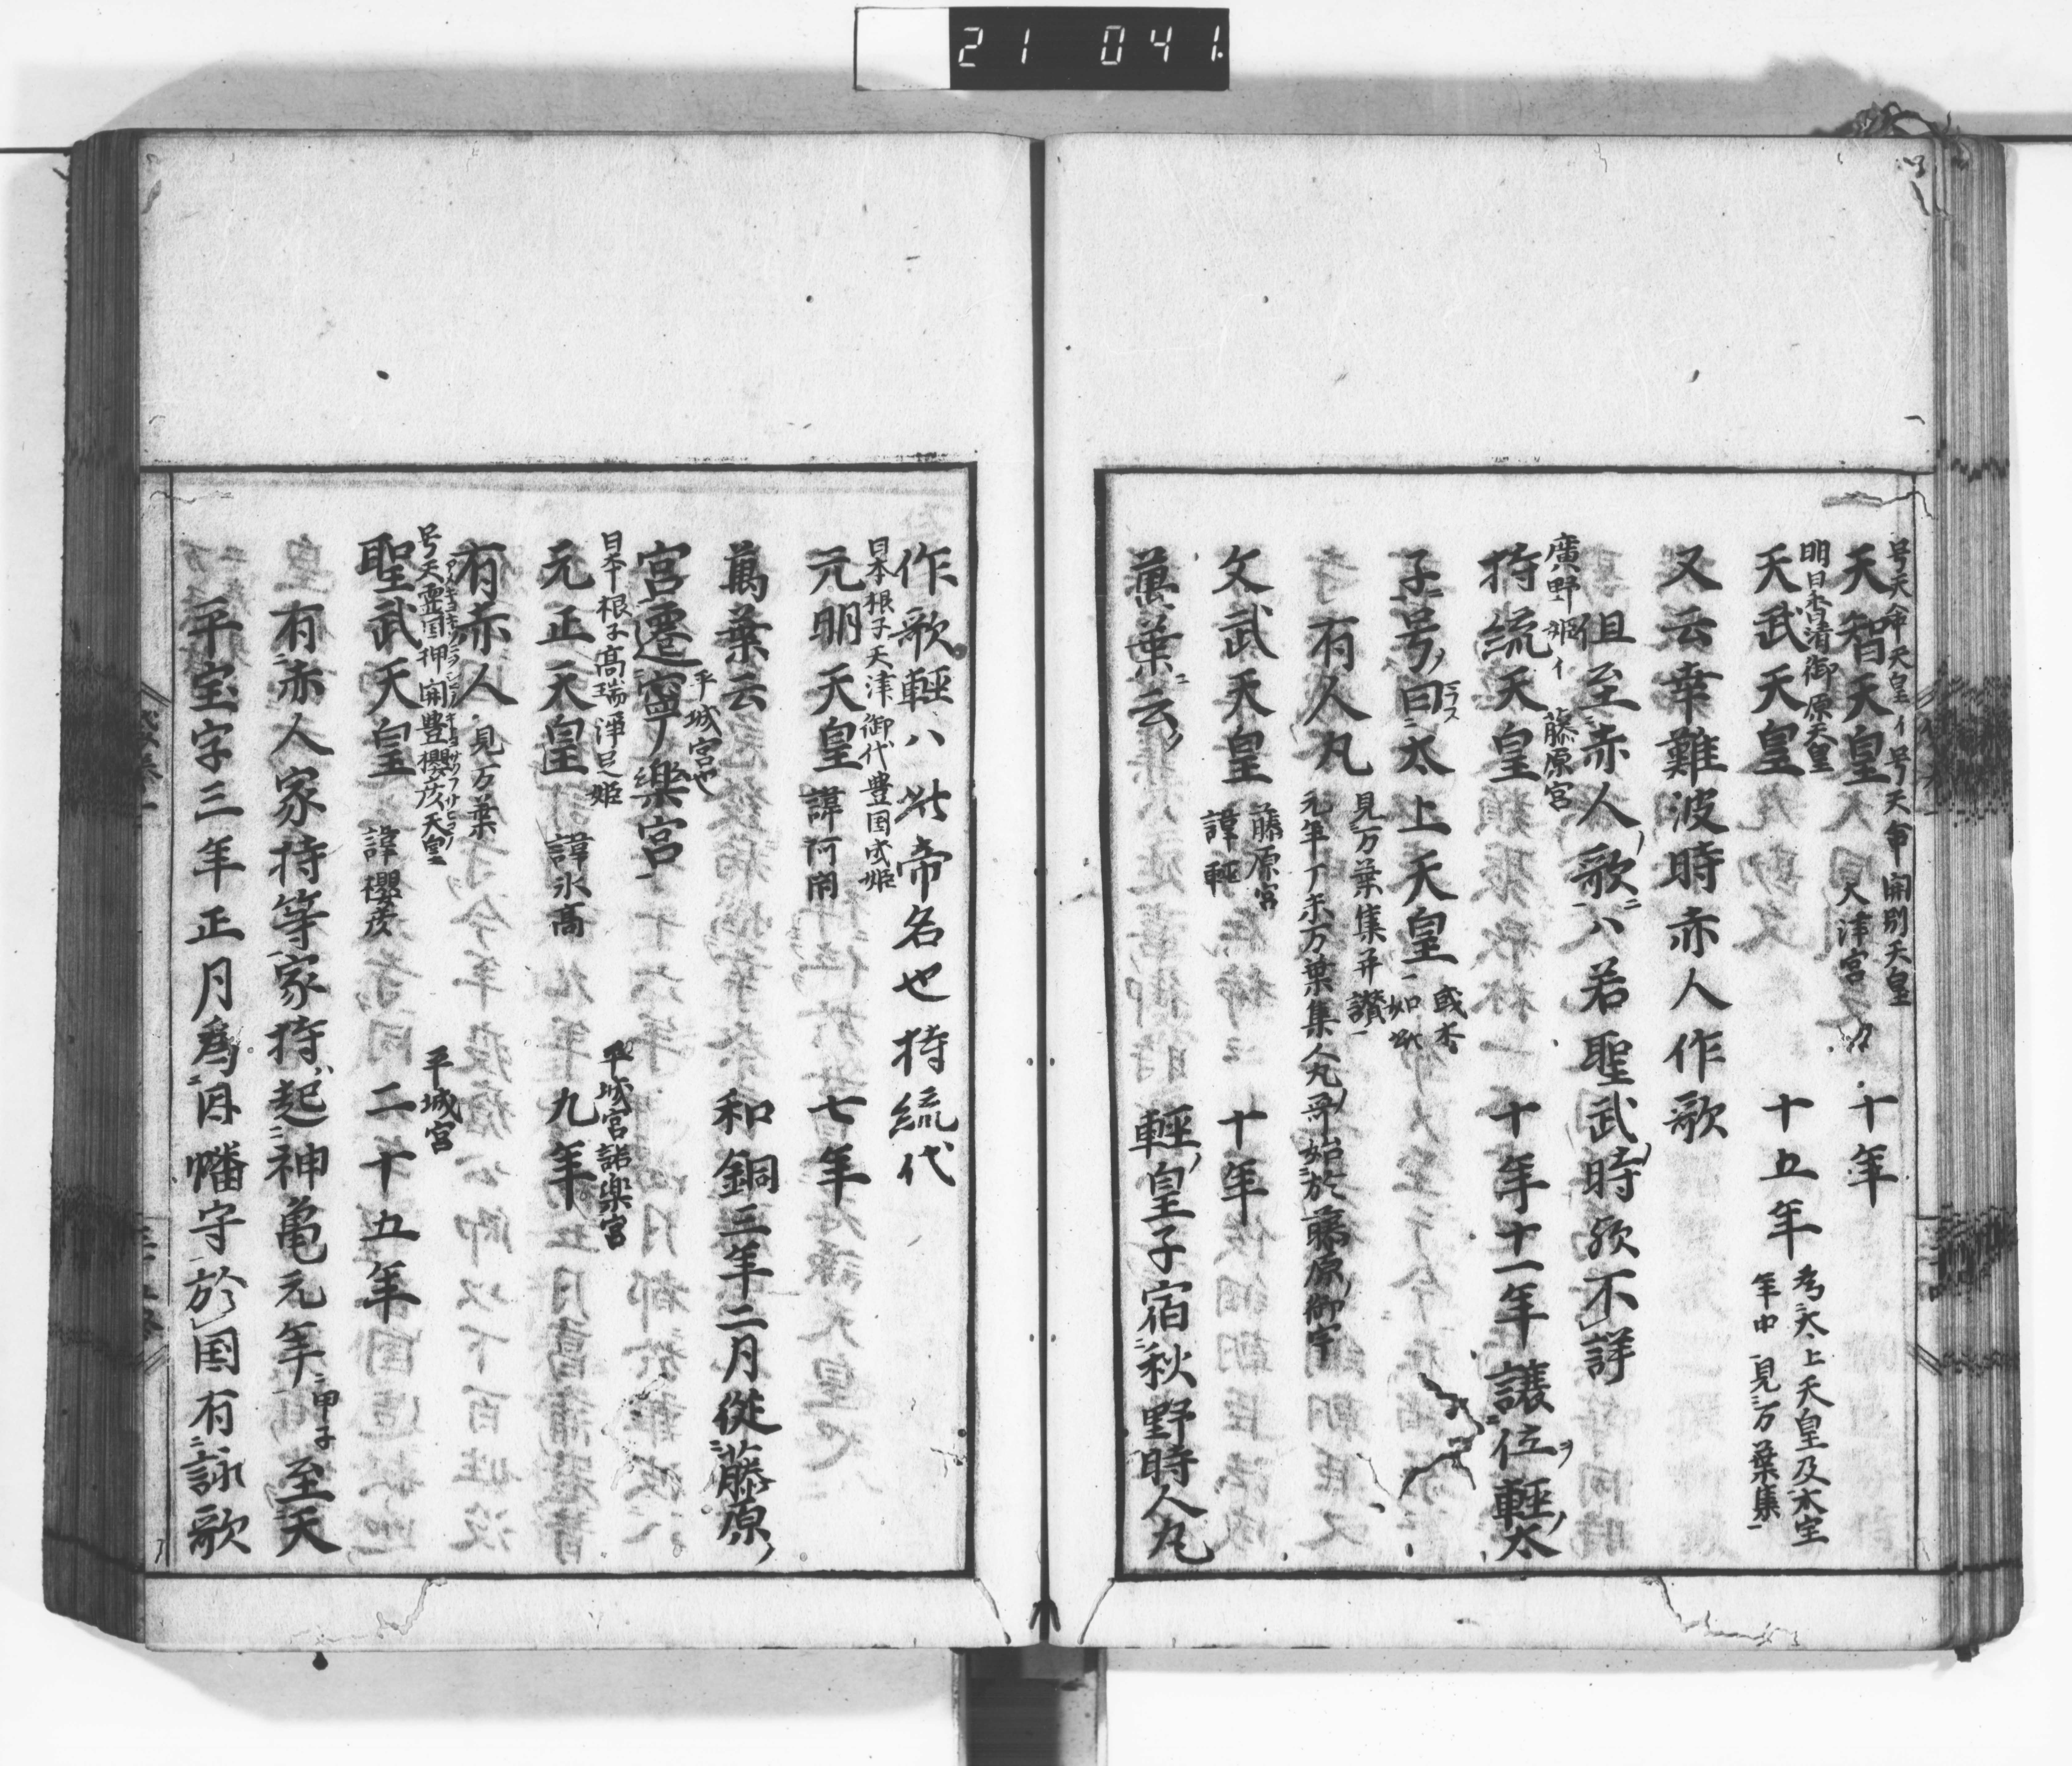 21 041
号天命天皇イ号天命開別天皇
天智天皇 大津宮 十年
明日香清御原天皇
天武天皇 十五年 考太上天皇及大宝
年中見万葉集
又云幸難波時赤人作歌
但至赤人歌ハ若聖武時歟不詳
廣野姫イ 藤原宮
持統天皇 十年十一年譲位ヲ軽太
子号曰太上天皇 或本
如此
見万葉集并讃
有人丸 元年丁未万葉集人丸哥始於藤原御宇
文武天皇 藤原宮
諱軽 十年
萬葉云 軽皇子宿秋野時人丸
作歌軽ハ此帝名也持統代
日本根子天津御代豊国成姫
元明天皇 諱阿閇 七年
萬葉云 和銅三年二月従藤原
平城宮也
宮遷寧樂宮
日本根子高瑞浄足姫 平城宮諾樂宮
元正天皇 諱氷高 九年
有赤人 見万葉
号天璽国押開豊櫻彦天皇 平城宮
聖武天皇 諱櫻彦 二十五年
有赤人家持等家持起神亀元年甲子至天
平宝字三年正月為因幡守於国有詠歌